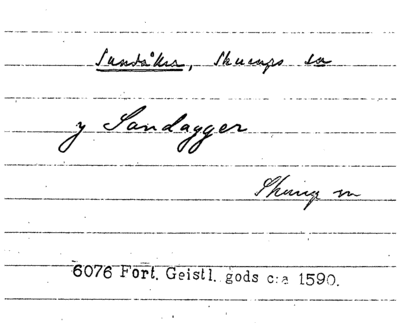 Sandåkra, Skurups sn
y Sandagger
Skurup sn
6076 Fort. Geistl. gods c:a 1590.